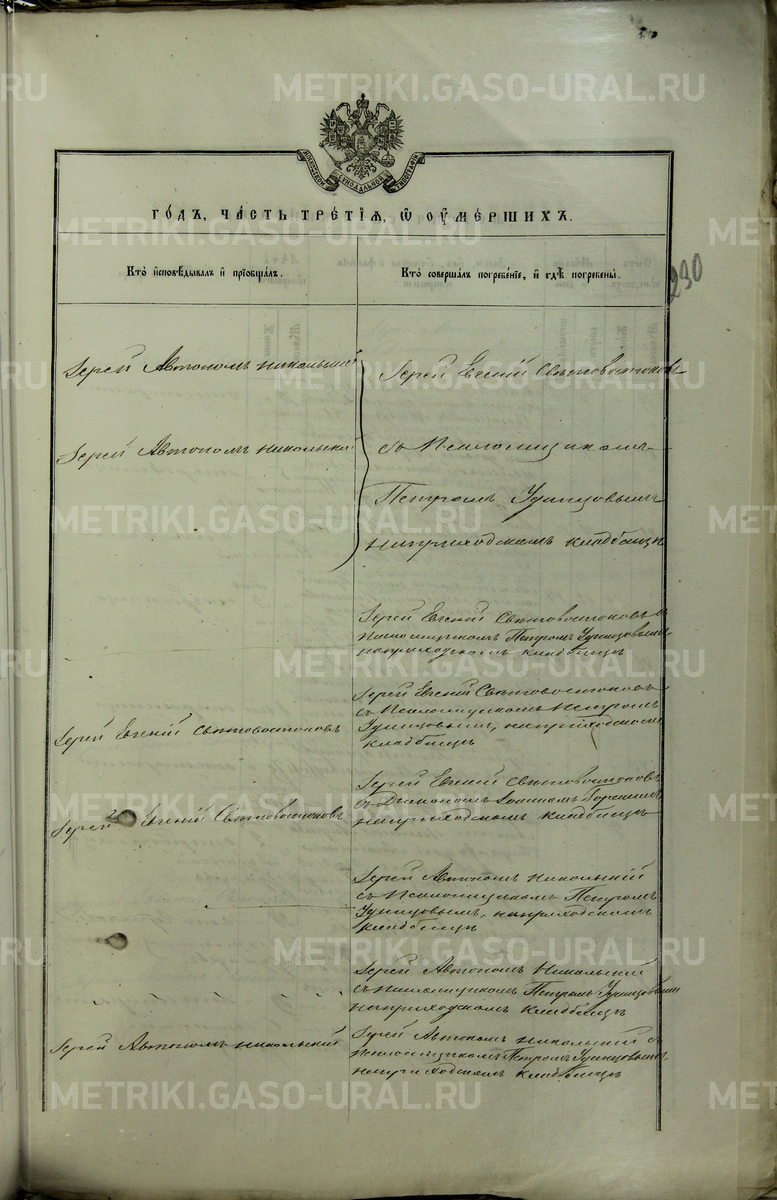 METRIKI.GASO-URAL.RU
МОСКОВСКОЙ СѴНОДАЛЬНОЙ ТИПОГРАФІИ
ГОДЪ, ЧАСТЬ ТРЕТІЯ, Ѡ ОУМЕРШИХЪ.
Кто исповѣдывалъ и пріобщалъ.
Кто совершалъ погребеніе, и гдѣ погребены.
290
Іерей Автономъ Никольскій
Іерей Евгеній Свѣтовостоковъ
Іерей Автономъ Никольскій
съ Псаломщикомъ
Петромъ Удинцовымъ
на приходскомъ кладбищѣ
Іерей Евгеній Свѣтовостоковъ съ
Псаломщикомъ Петромъ Удинцовымъ
на приходскомъ кладбищѣ
Іерей Евгеній Свѣтовостоковъ
Іерей Евгеній Свѣтовостоковъ
съ Псаломщикомъ Петромъ
Удинцовымъ, на приходскомъ
кладбищѣ
Іерей Евгеній Свѣтовостоковъ
Іерей Евгеній Свѣтовостоковъ
съ Діакономъ
на приходскомъ кладбищѣ
Іерей Автономъ Никольскій
съ Псаломщикомъ Петромъ
Удинцовымъ, на приходскомъ
кладбищѣ
Іерей Автономъ Никольскій
съ Псаломщикомъ Петромъ Удинцовымъ
на приходскомъ кладбищѣ
Іерей Автономъ Никольскій
Іерей Автономъ Никольскій съ
Псаломщикомъ Петромъ Удинцовымъ
на приходскомъ кладбищѣ